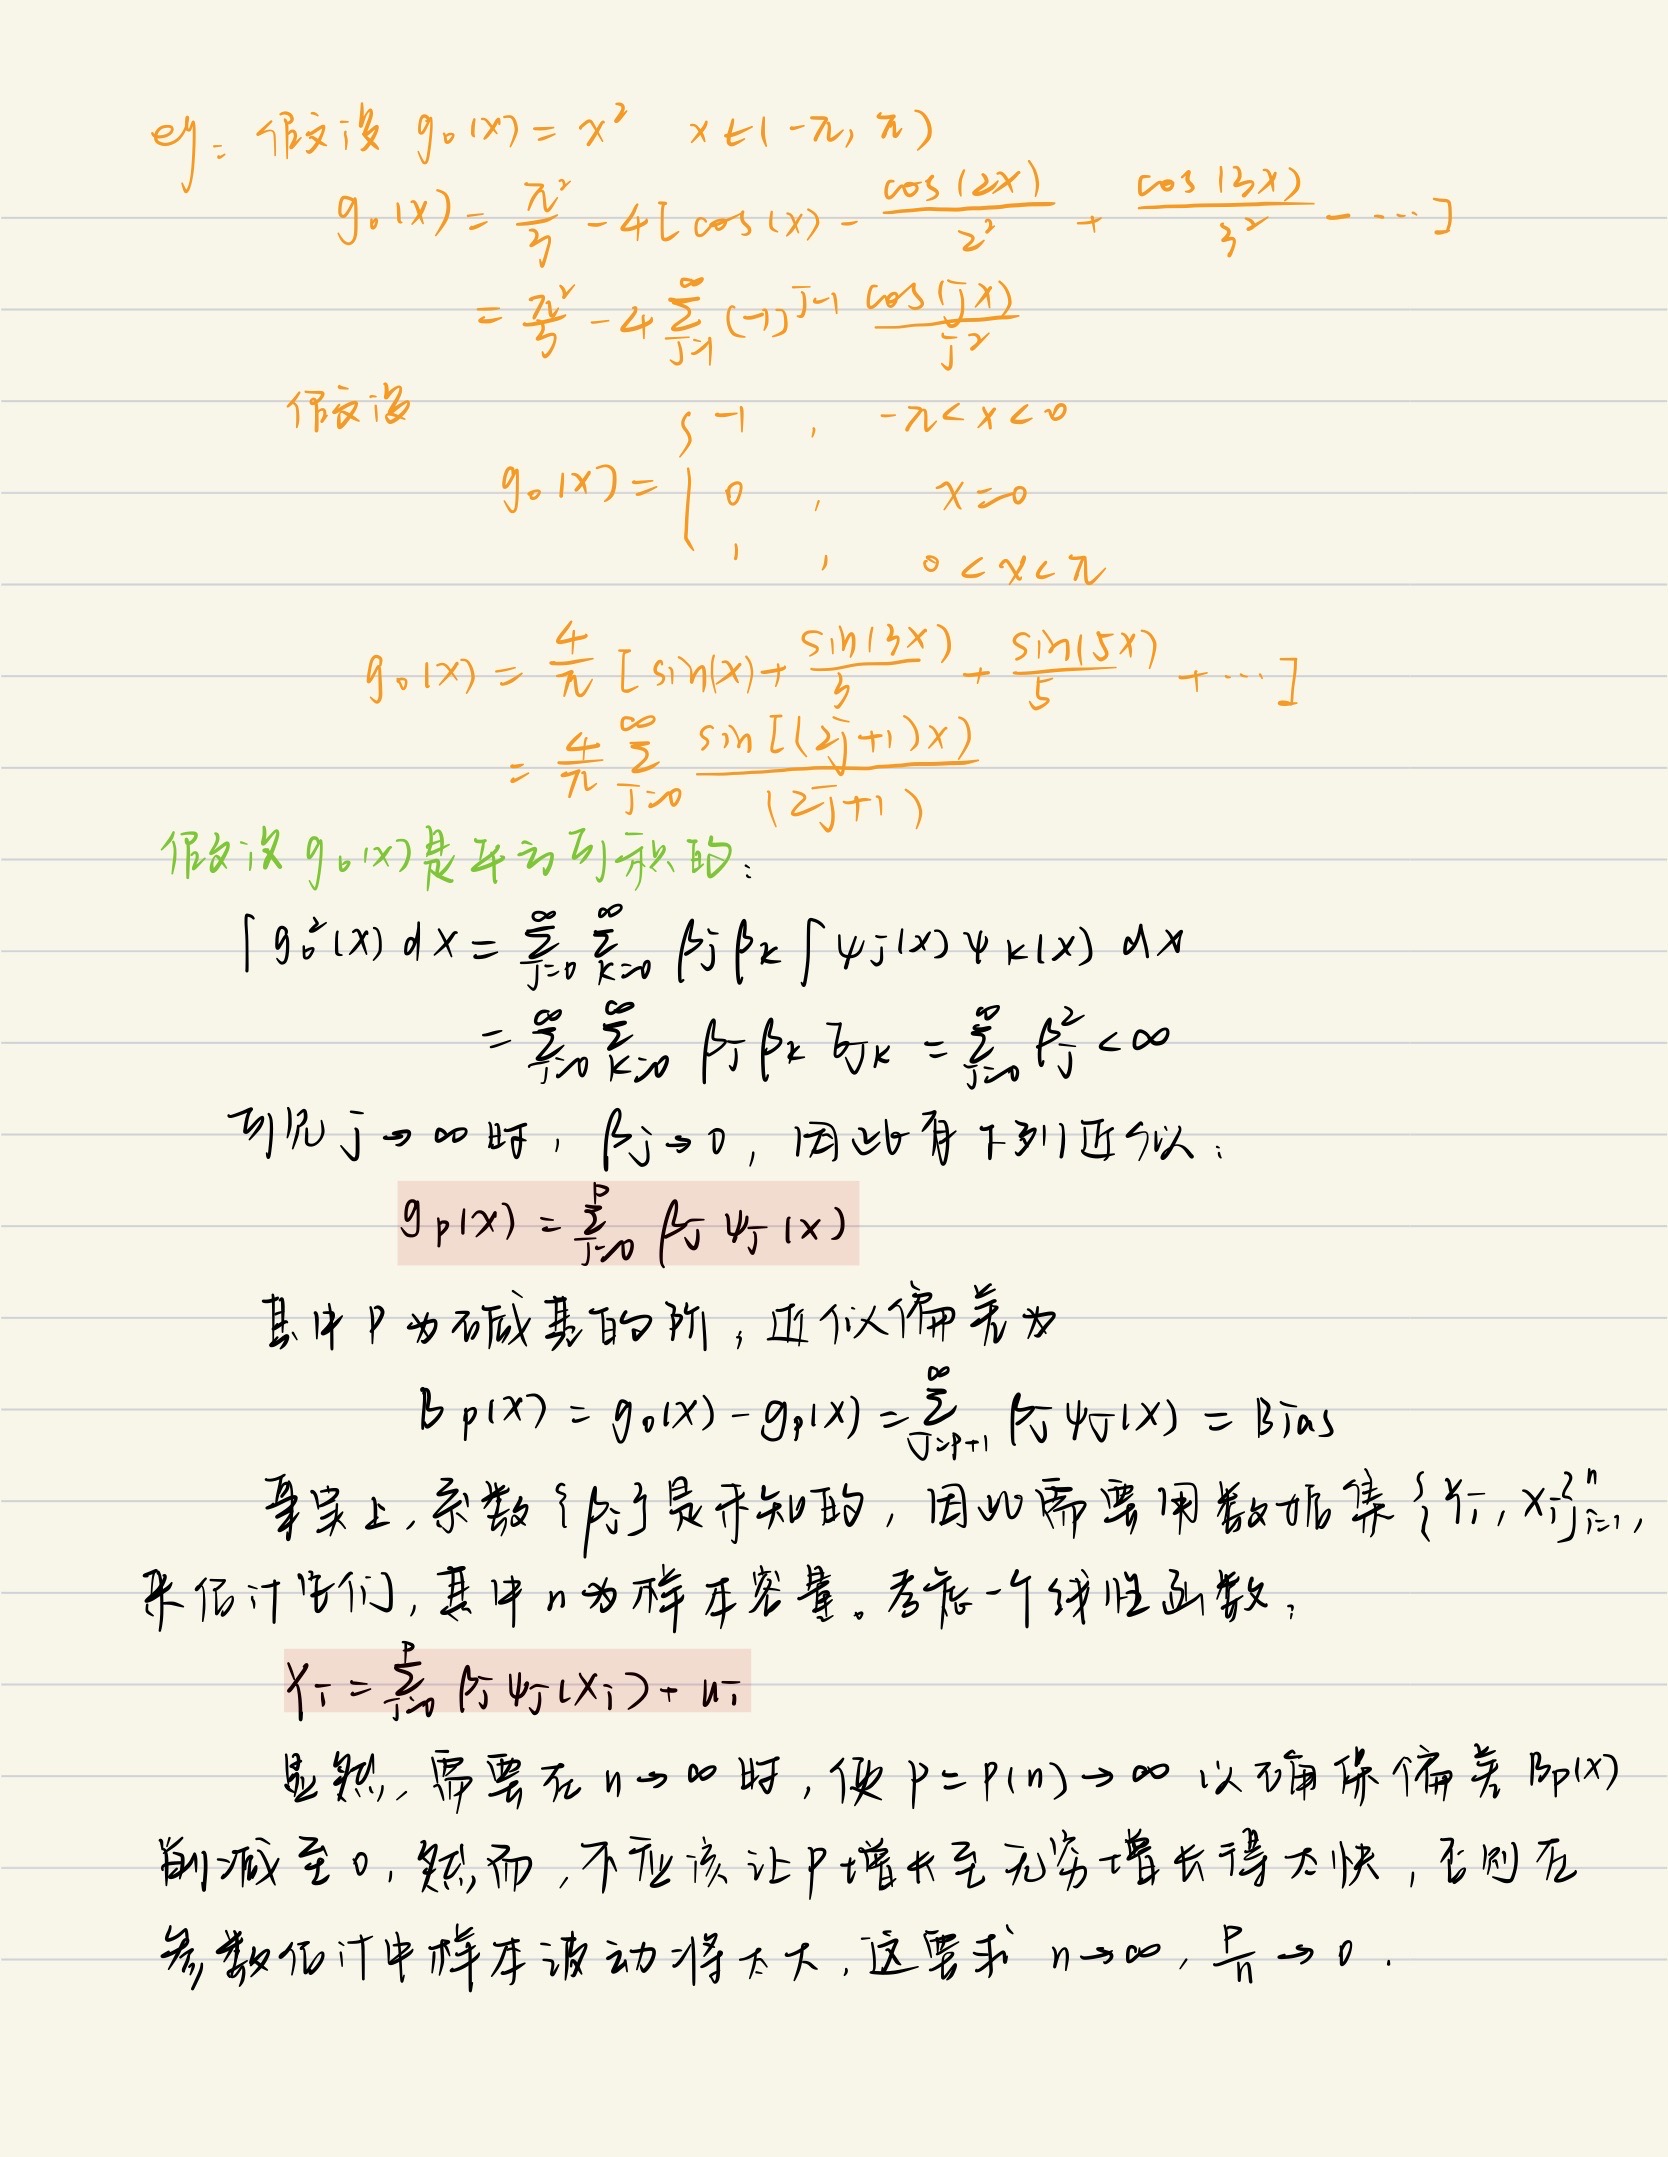 eg: 假设 g₀(x) = x² x∈(-π, π)
g₀(x) = π²/3 - 4[cos(x) - cos(2x)/2² + cos(3x)/3² - ⋯]
= π²/3 - 4 Σ_{j=1}^{∞} (-1)^{j-1} cos(jx)/j²
假设
g₀(x) = { -1 , -π < x < 0
0 , x = 0
1 , 0 < x < π
g₀(x) = 4/π [sin(x) + sin(3x)/3 + sin(5x)/5 + ⋯]
= 4/π Σ_{j=0}^{∞} sin[(2j+1)x)/(2j+1)
假设 g₀(x) 是平方可积的:
∫ g₀²(x) dx = Σ_{j=0}^{∞} Σ_{k=0}^{∞} βj βk ∫ ψj(x) ψk(x) dx
= Σ_{j=0}^{∞} Σ_{k=0}^{∞} βj βk δjk = Σ_{j=0}^{∞} βj² < ∞
可见 j→∞ 时, βj→0, 因此有下列近似:
gp(x) = Σ_{j=0}^{p} βj ψj(x)
其中 P 为碱基的阶, 近似偏差为
Bp(x) = g₀(x) - gp(x) = Σ_{j=p+1}^{∞} βj ψj(x) = Bias
事实上, 系数 {βj} 是未知的, 因此需要用数据集 {Yi, Xi}_{i=1}^{n},
来估计它们, 其中 n 为样本容量。考虑一个线性函数:
Yi = Σ_{j=0}^{p} βj ψj(Xi) + ui
显然, 需要在 n→∞ 时, 使 p = p(n)→∞ 以确保偏差 Bp(x)
削减至 0, 然而, 不应该让 p 增长至无穷增长得太快, 否则在
参数估计中样本波动将太大, 这要求 n→∞, p/n → 0.